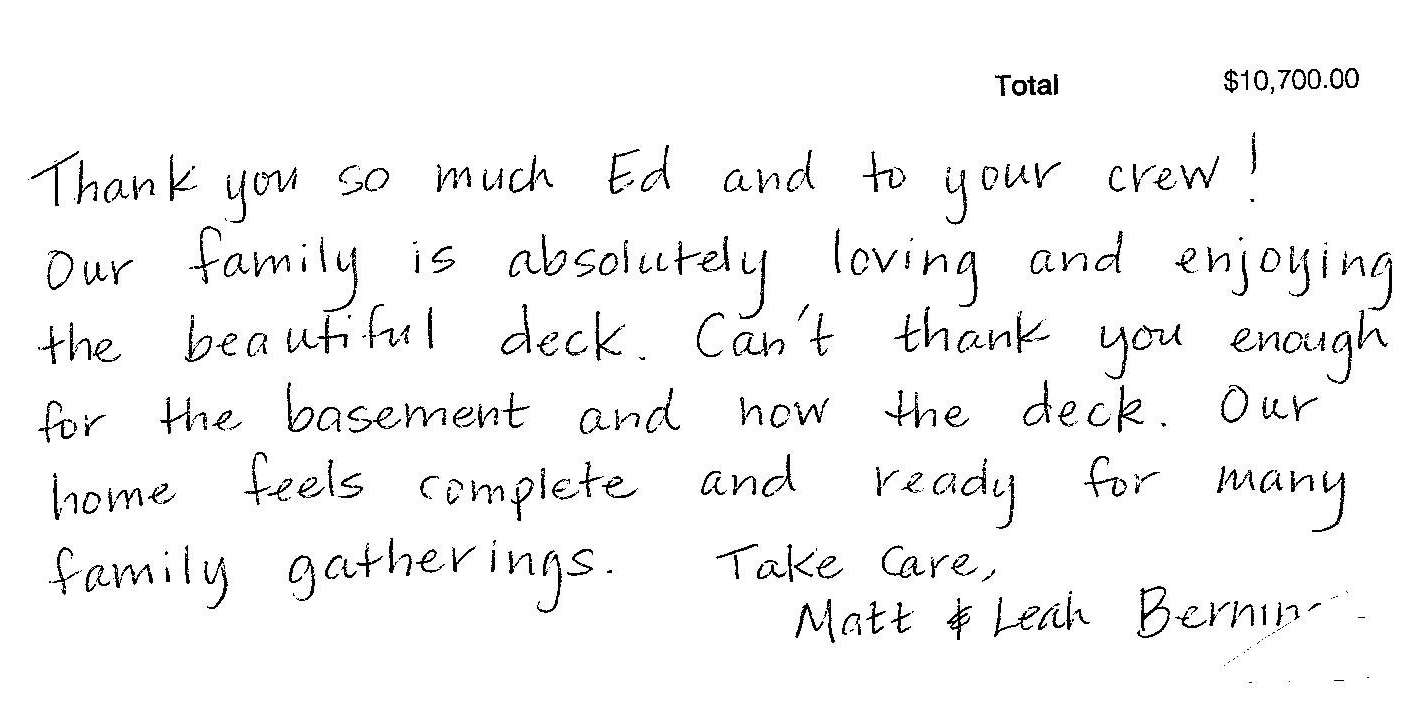 Total $10,700.00
Thank you so much Ed and to your crew!
Our family is absolutely loving and enjoying
the beautiful deck. Can't thank you enough
for the basement and now the deck. Our
home feels complete and ready for many
family gatherings. Take Care,
Matt & Leah